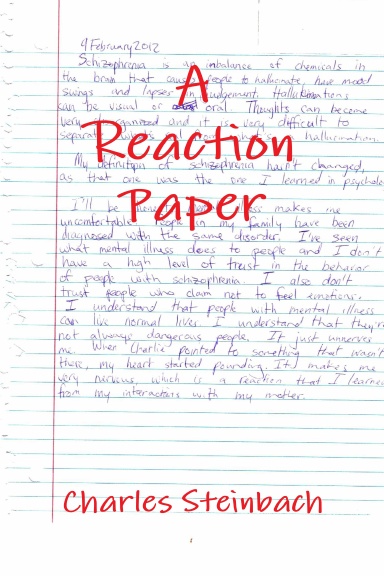 9 February 2012
Schizophrenia is an imbalance of chemicals in
the brain that causes people to hallucinate, have mood
swings and lapses in judgement. Hallucinations
can be visual or oral. Thoughts can become
very organized and it is very difficult to
separate what's from what's hallucination.
My definition of schizophrenia hasn't changed,
as that one was the one I learned in psycholo
I'll be makes me
uncomfortable. People in my family have been
diagnosed with the same disorder. I've seen
what mental illness does to people and I don't
have a high level of trust in the behavior
of people with schizophrenia. I also don't
trust people who claim not to feel emotions.
I understand that people with mental illness
can live normal lives. I understand that they're
not always dangerous people. It just unnerves
me. When Charlie pointed to something that wasn't
there, my heart started pounding. It makes me
very nervous, which is a reaction that I learned
from my interactions with my mother.
A
Reaction
Paper
Charles Steinbach